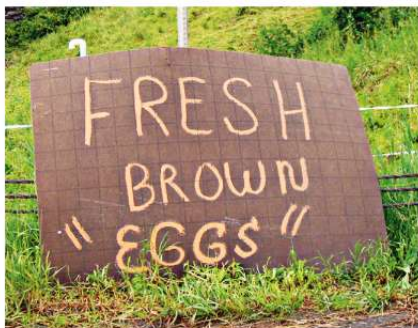 FRESH
BROWN
"EGGS"